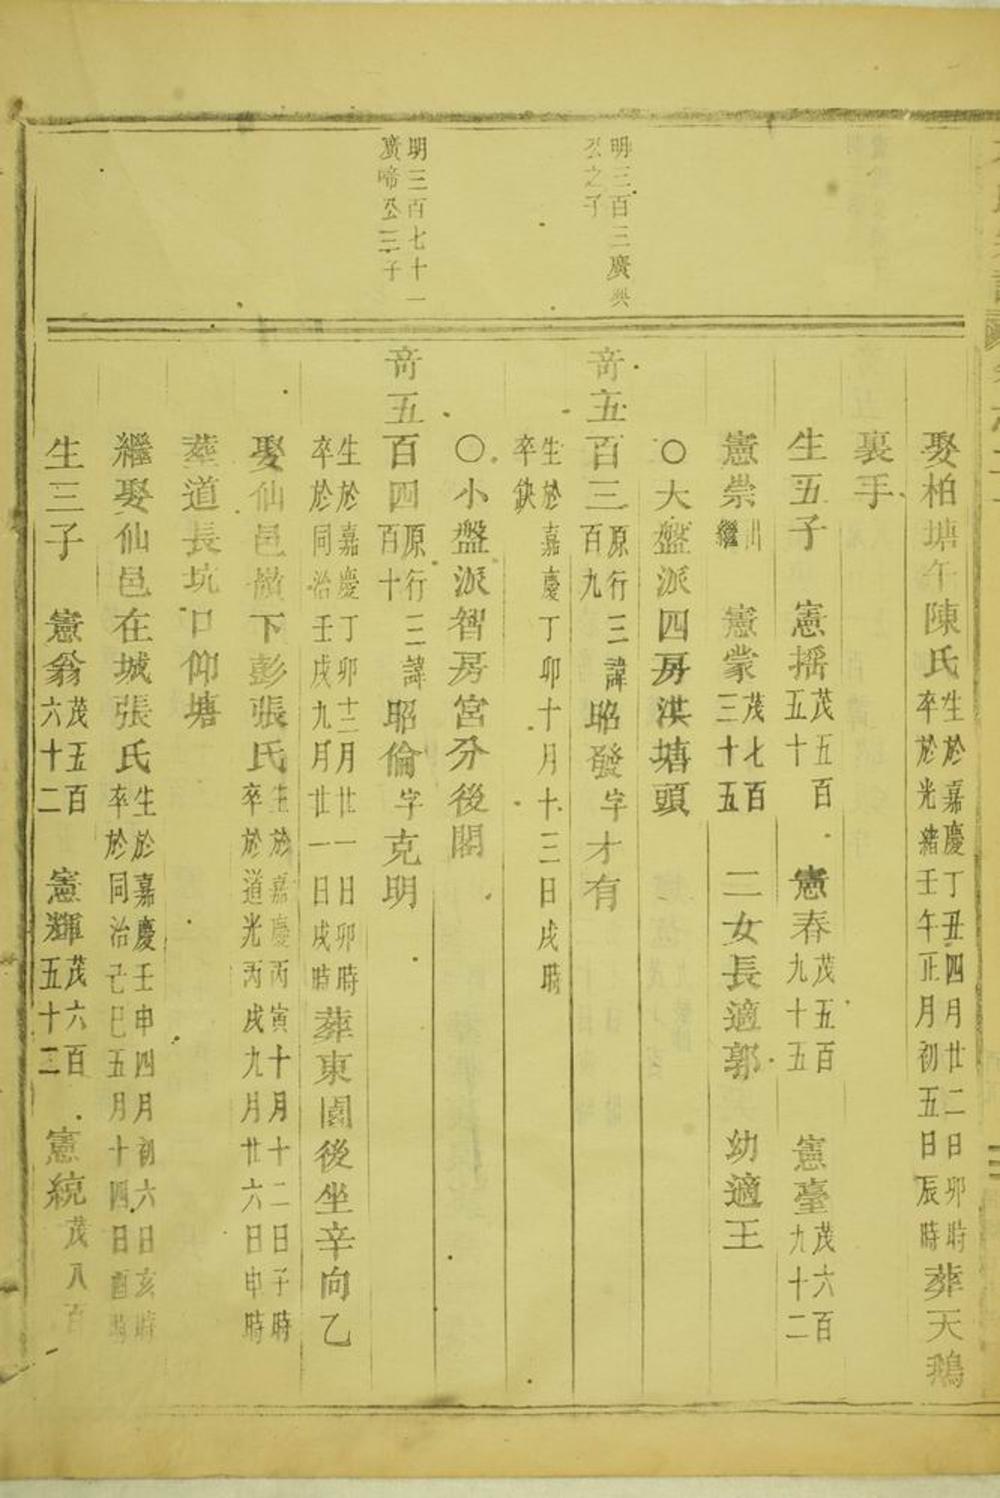 娶柏塘午陳氏生於嘉慶丁丑四月廿二日卯時卒於光緒壬午正月初五日辰時葬天鵝
裏手
生五子　憲搖茂五百五十　憲春茂五百九十五　憲臺茂六百九十二
憲崇出繼　憲蒙茂七百三十五　二女長適郭　幼適王
○大盤派四房淇塘頭
明三百三廣興
公之子
奇五百三原行三百九諱昭發字才有
生於嘉慶丁卯十月十三日戌時
卒缺
○小盤派智房宮分後閣
明三百七十一
廣啼公三子
奇五百四原行三百十諱昭倫字克明
生於嘉慶丁卯十二月廿一日卯時卒於同治壬戌九月廿一日戌時葬東園後坐辛向乙
娶仙邑嶺下彭張氏生於嘉慶丙寅十月十二日子時卒於道光丙戌九月廿六日申時
葬道長坑口仰塘
繼娶仙邑在城張氏生於嘉慶壬申四月初六日亥時卒於同治己巳五月十四日酉時
生三子　憲翁茂五百六十二　憲輝茂六百五十二　憲統茂八百